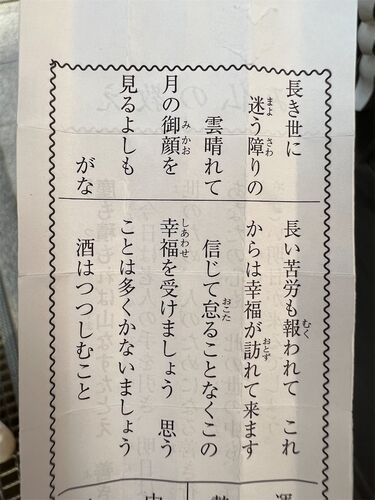 長き世に
迷う障りの
雲晴れて
月の御顔を
見るよしも
がな
長い苦労も報われて これ
からは幸福が訪れて来ます
信じて怠ることなくこの
幸福を受けましょう 思う
ことは多くかないましょう
酒はつつしむこと
運